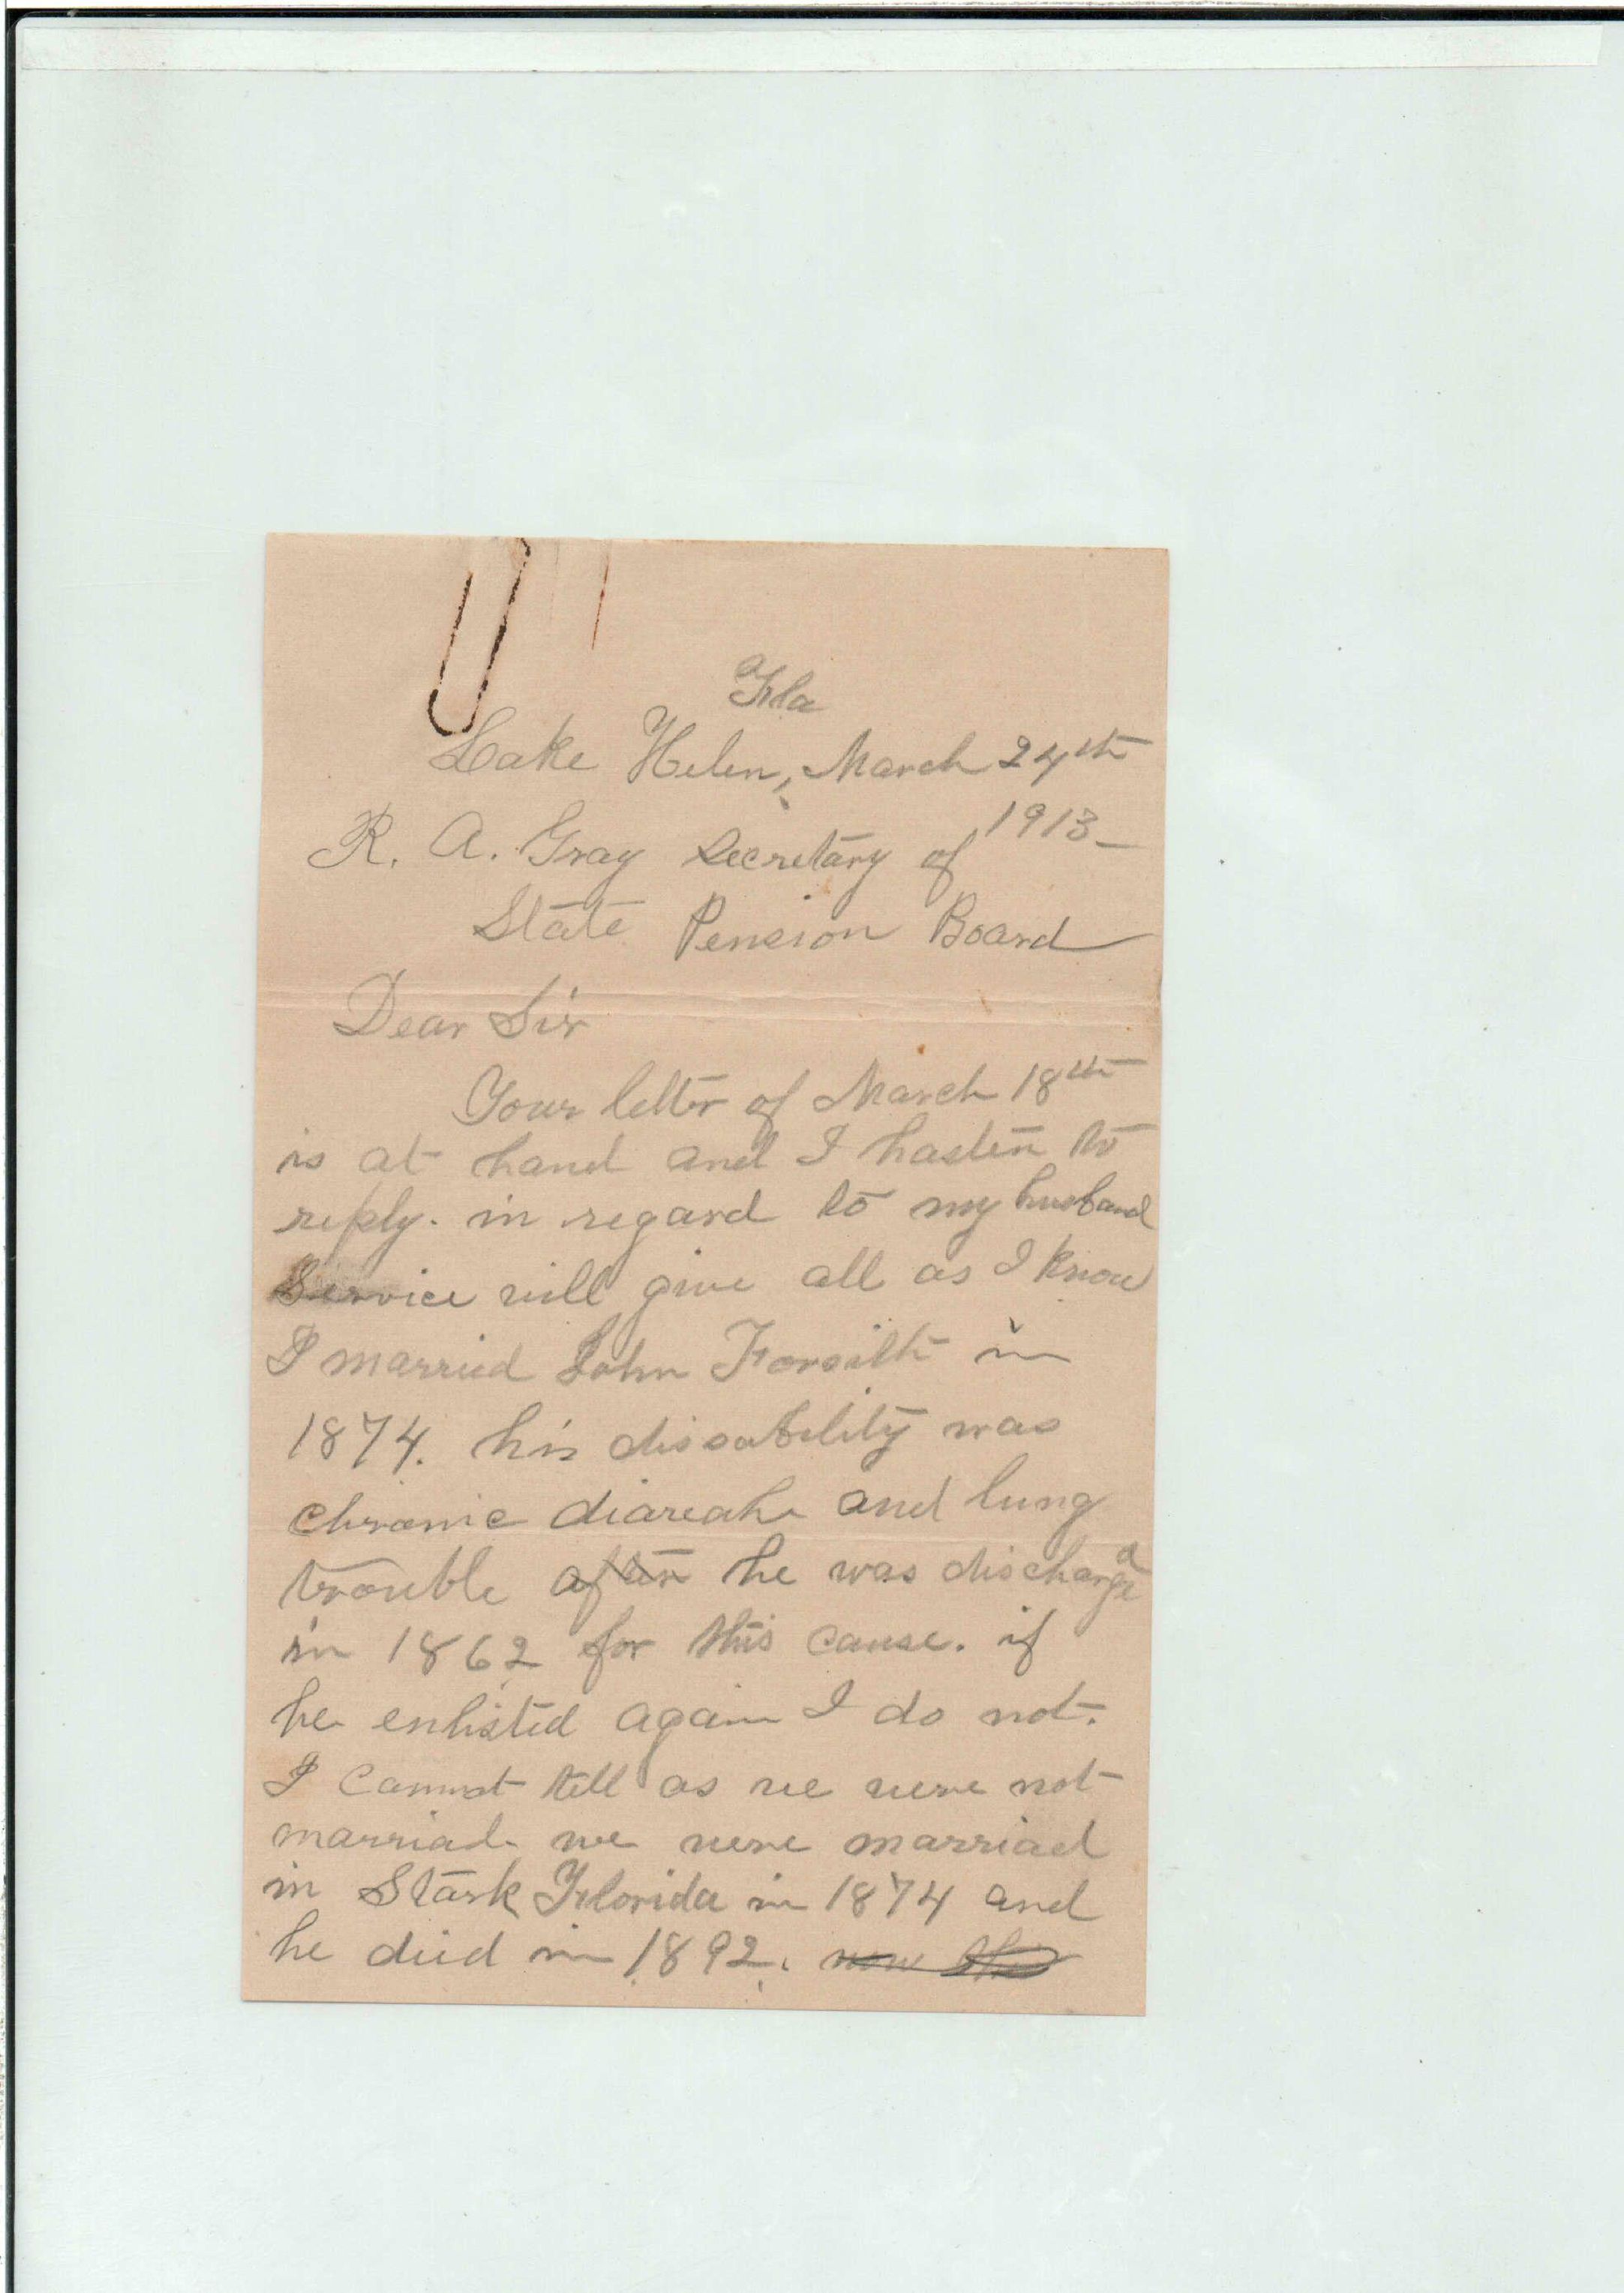 Fla
Lake Helen, March 24th
1913-
R. A. Gray Secretary of
State Pension Board
Dear Sir
Your letter of March 18th
is at hand and I hasten to
reply. in regard to my husband
Service will give all as I know
I married John Forsith in
1874. his dissability was
chronic diareah and lung
trouble after he was discharged
in 1862 for this cause. if
he enlisted again I do not.
I cannot tell as we were not
marriad. we were marriad
in Stark Florida in 1874 and
he died in 1892. now